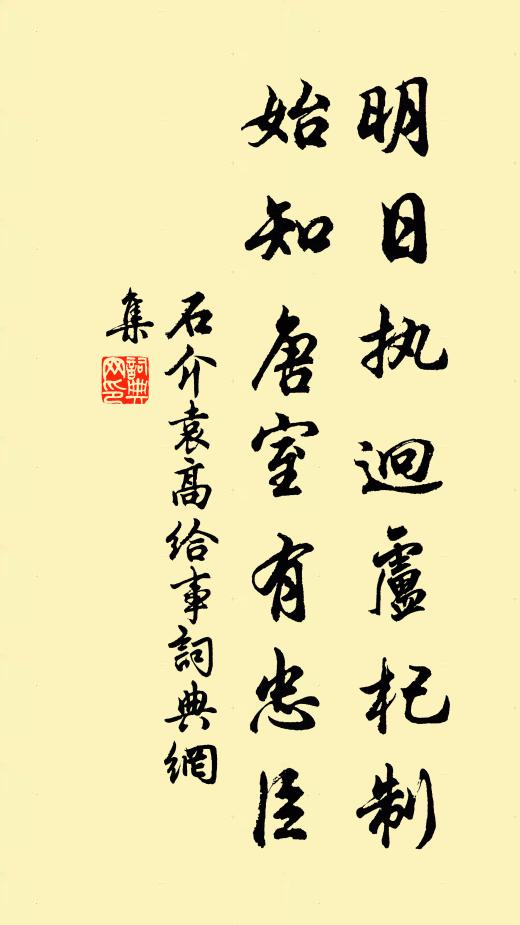 明日执迥盧杞制
始知唐室有忠臣
石介袁高给事詞典網
集
詞典網印